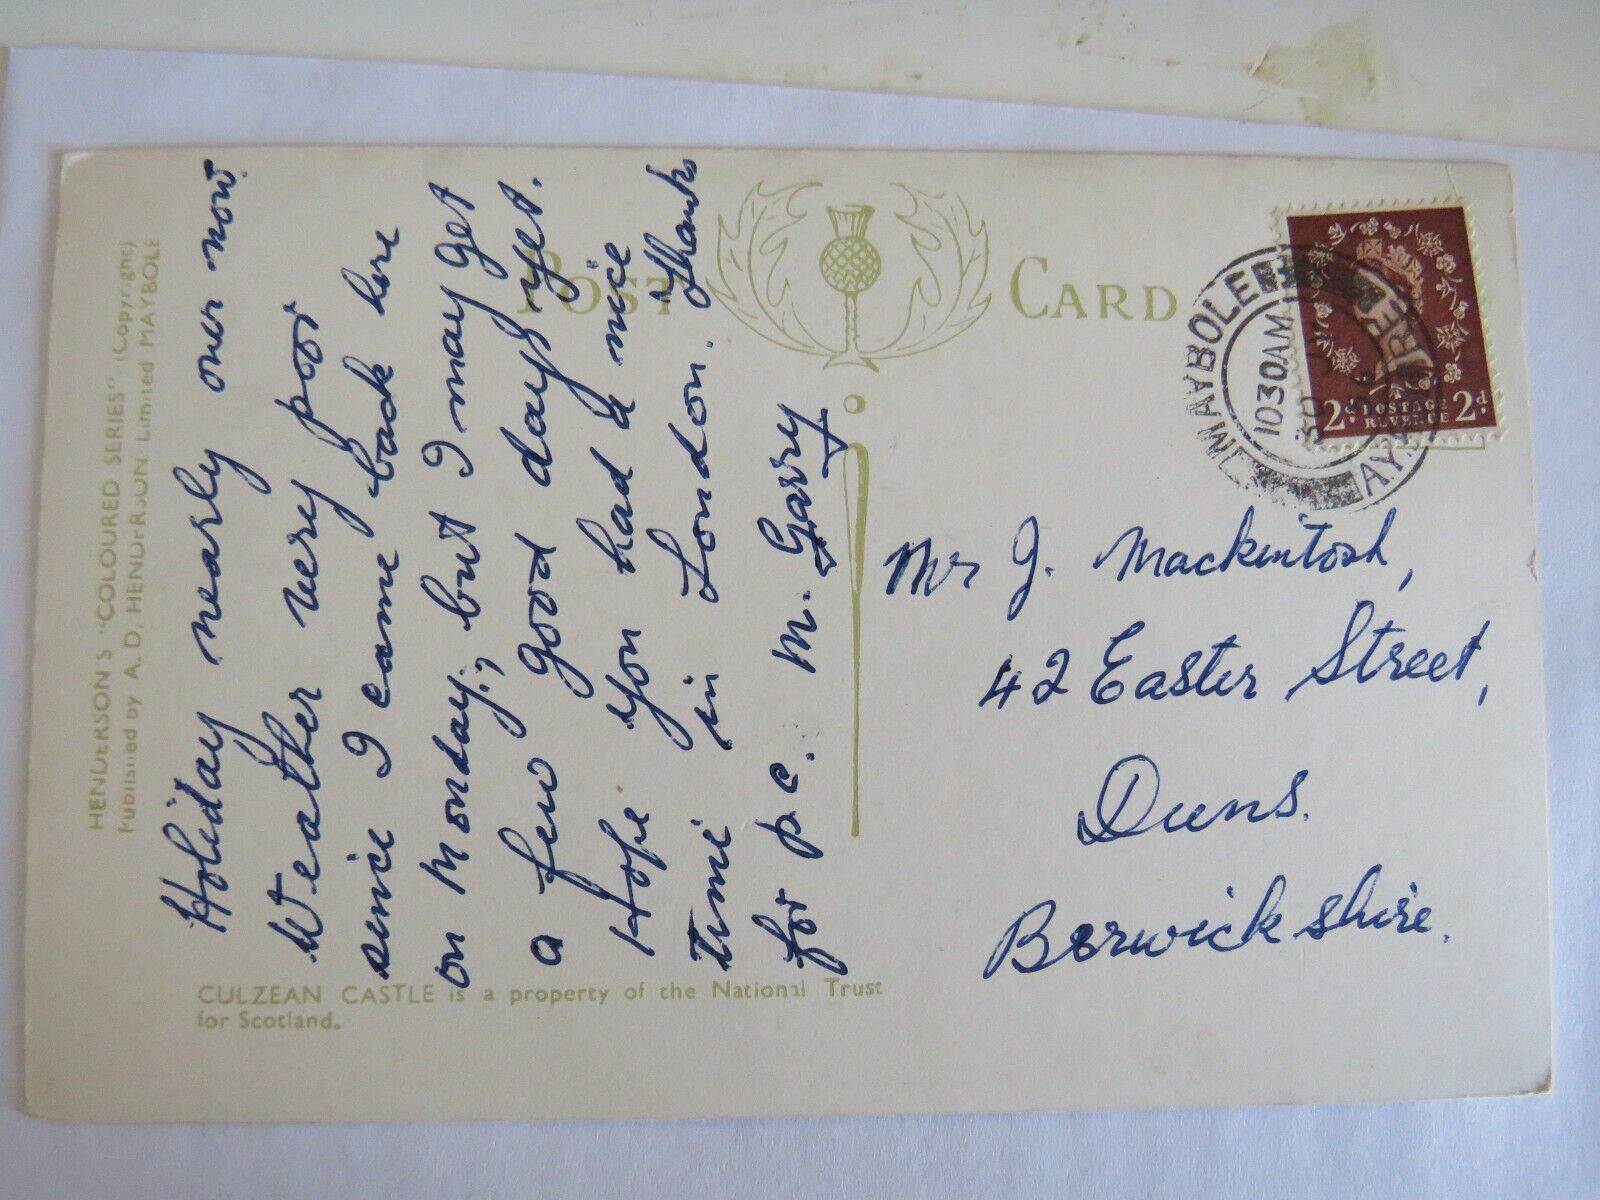 HENDERSON'S "COLOURED SERIES" (Copyright)
Published by A. D. HENDERSON Limited MAYBOLE
Holiday nearly over now.
Weather very poor
since I came back here
on Monday, but I may get
a few good days yet.
Hope you had a nice
time in London. Thanks
for p.c. M. Garry
POST CARD
MAYBOLE
1030AM
30
AYRSHIRE
2d. POSTAGE REVENUE 2d.
Mr J. Mackintosh,
42 Easter Street,
Duns.
Berwickshire.
CULZEAN CASTLE is a property of the National Trust
for Scotland.